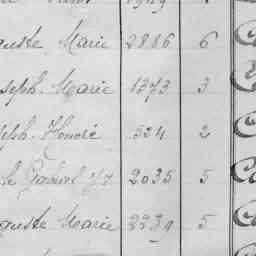 guste Marie 2886 6
seph Marie 1373 3
seph Honoré 524 2
le Gabriel 2035 5
guste Marie 2239 5